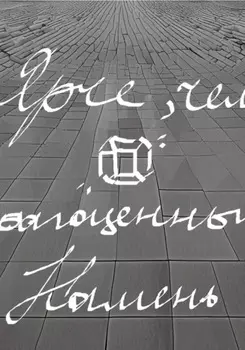 Ярче, чем
агоценны
Камень